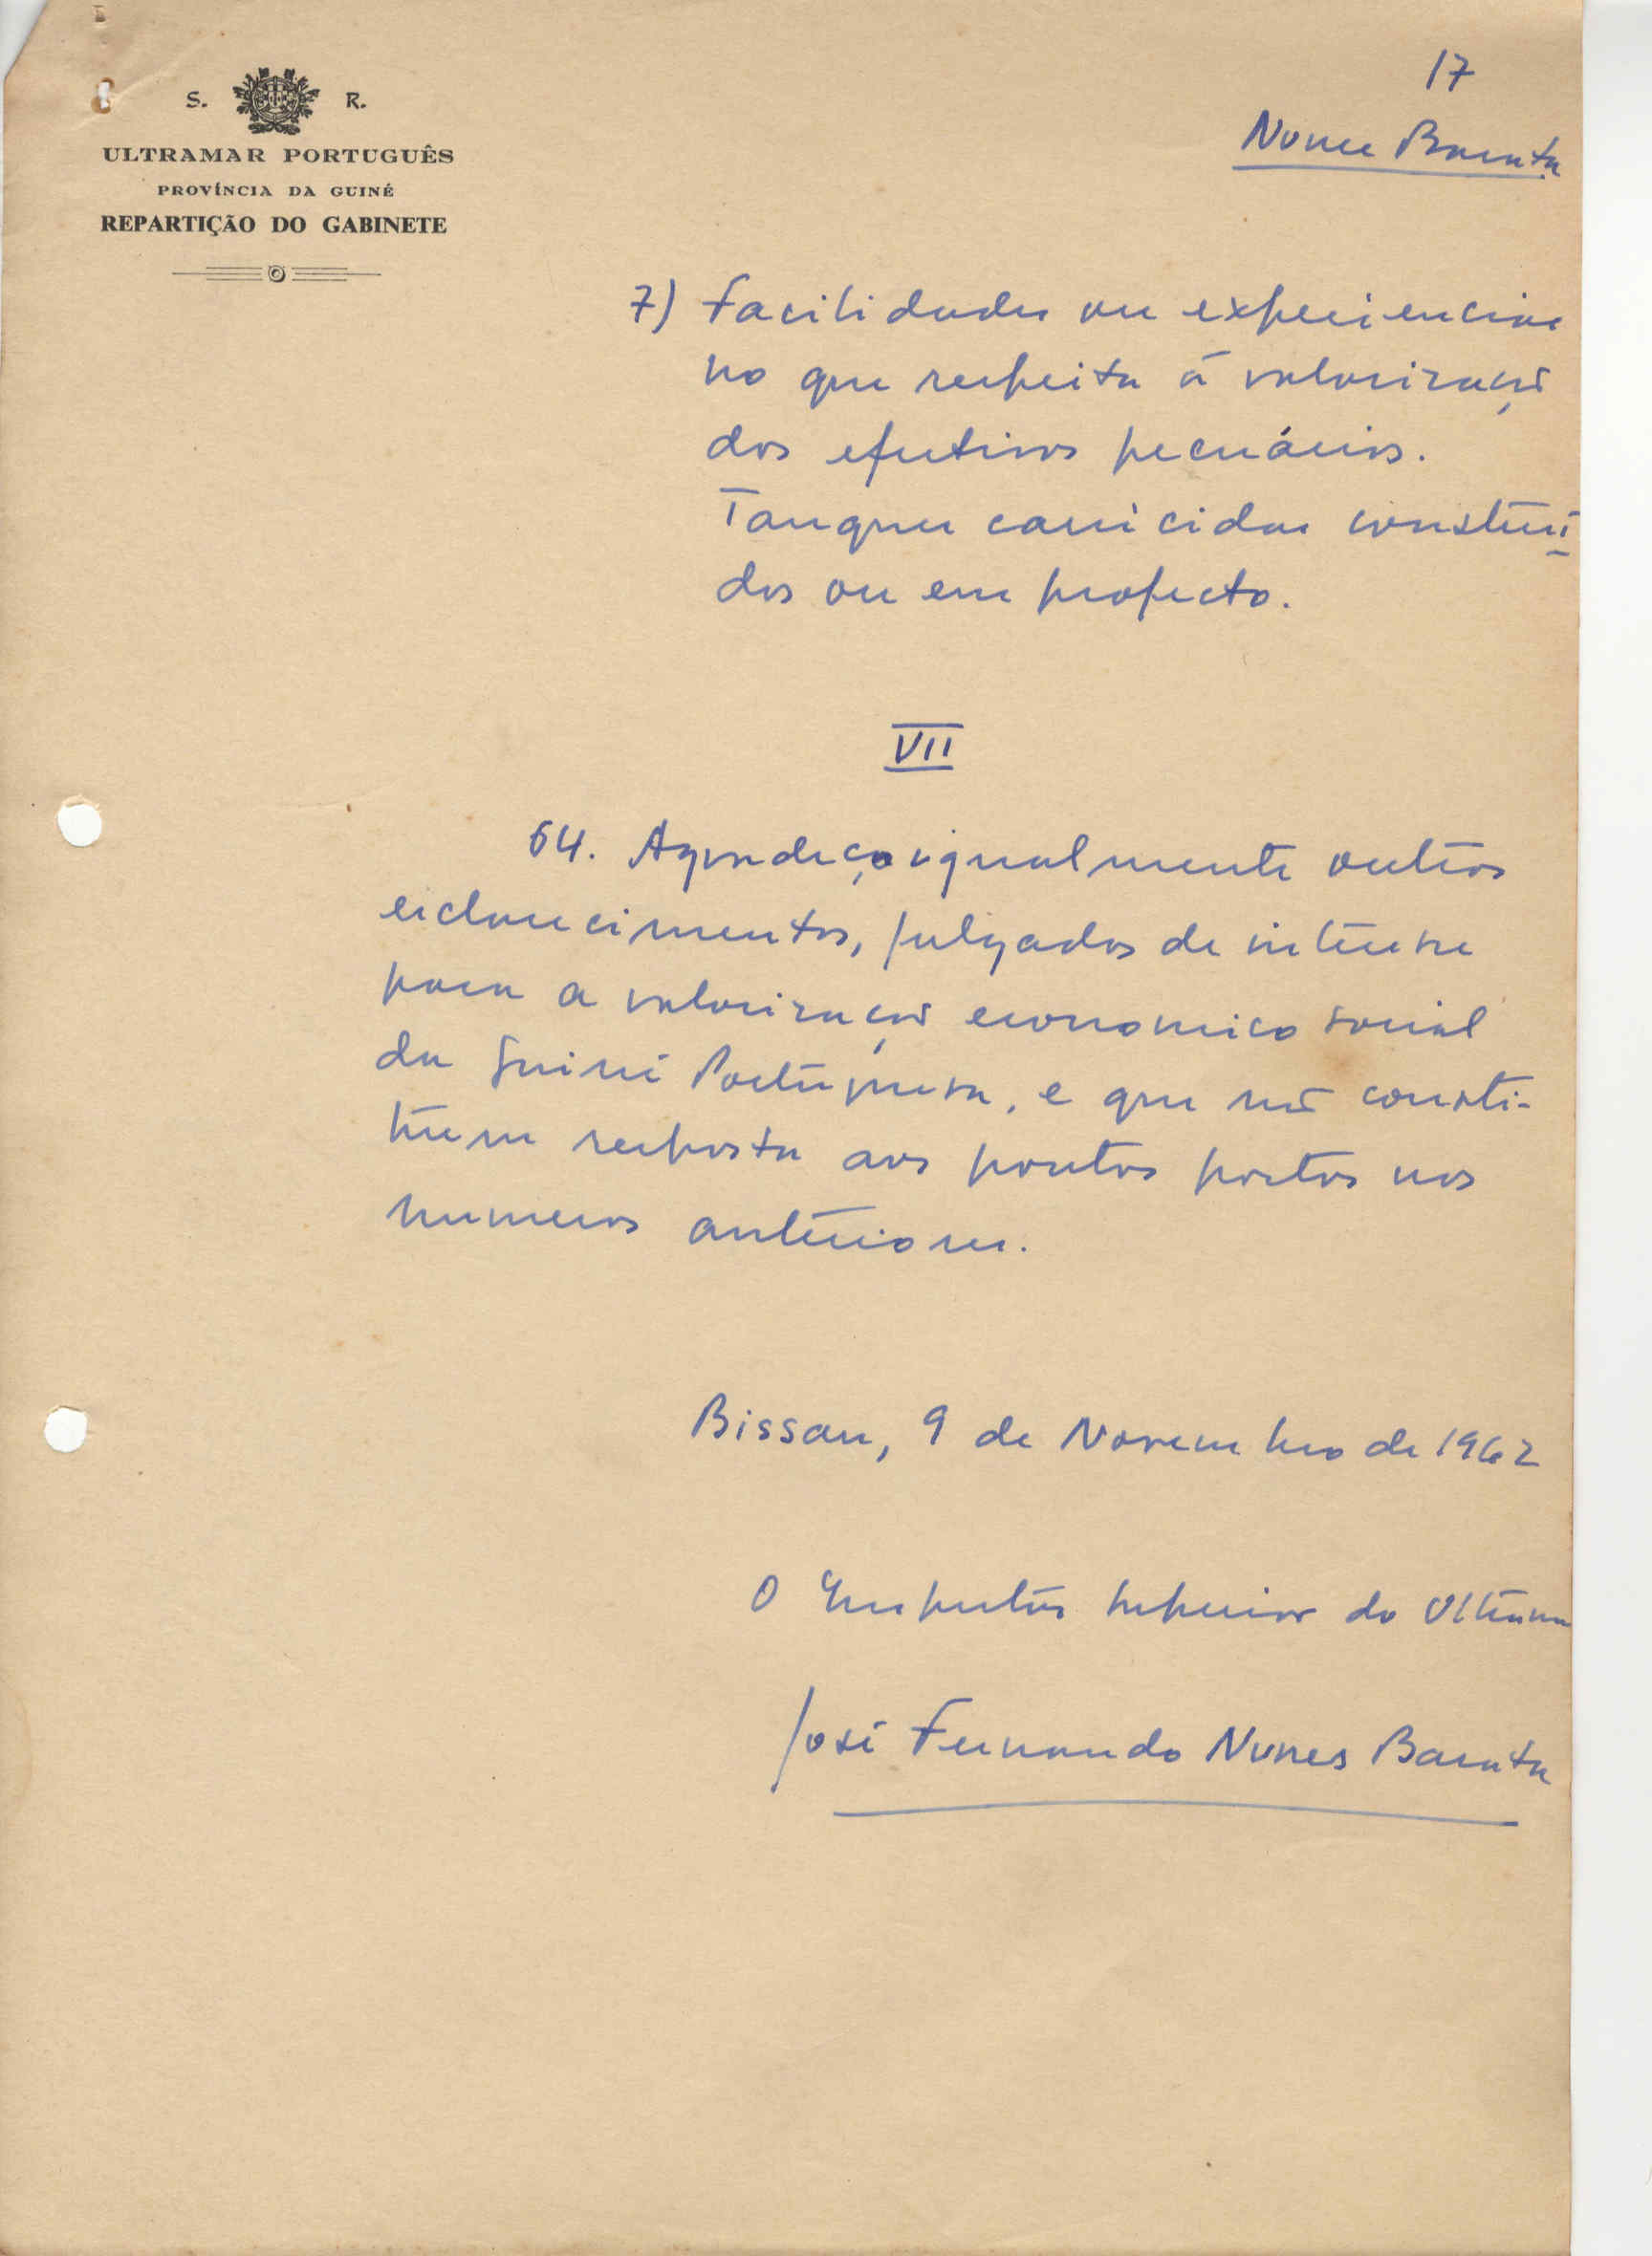 S. R.
ULTRAMAR PORTUGUÊS
PROVÍNCIA DA GUINÉ
REPARTIÇÃO DO GABINETE
17
Nunes Barata
7) Facilidades ou experiencias
no que respeita à valorização
dos efectivos pecuários.
Tanques carricidas construi-
dos ou em projecto.
VII
64. Agradeço igualmente outros
esclarecimentos, julgados de interesse
para a valorização economico social
da Guiné Portuguesa, e que não consti-
tuem resposta aos pontos postos nos
numeros anteriores.
Bissau, 9 de Novembro de 1962
O Inspector Superior do Ultramar
José Fernando Nunes Barata